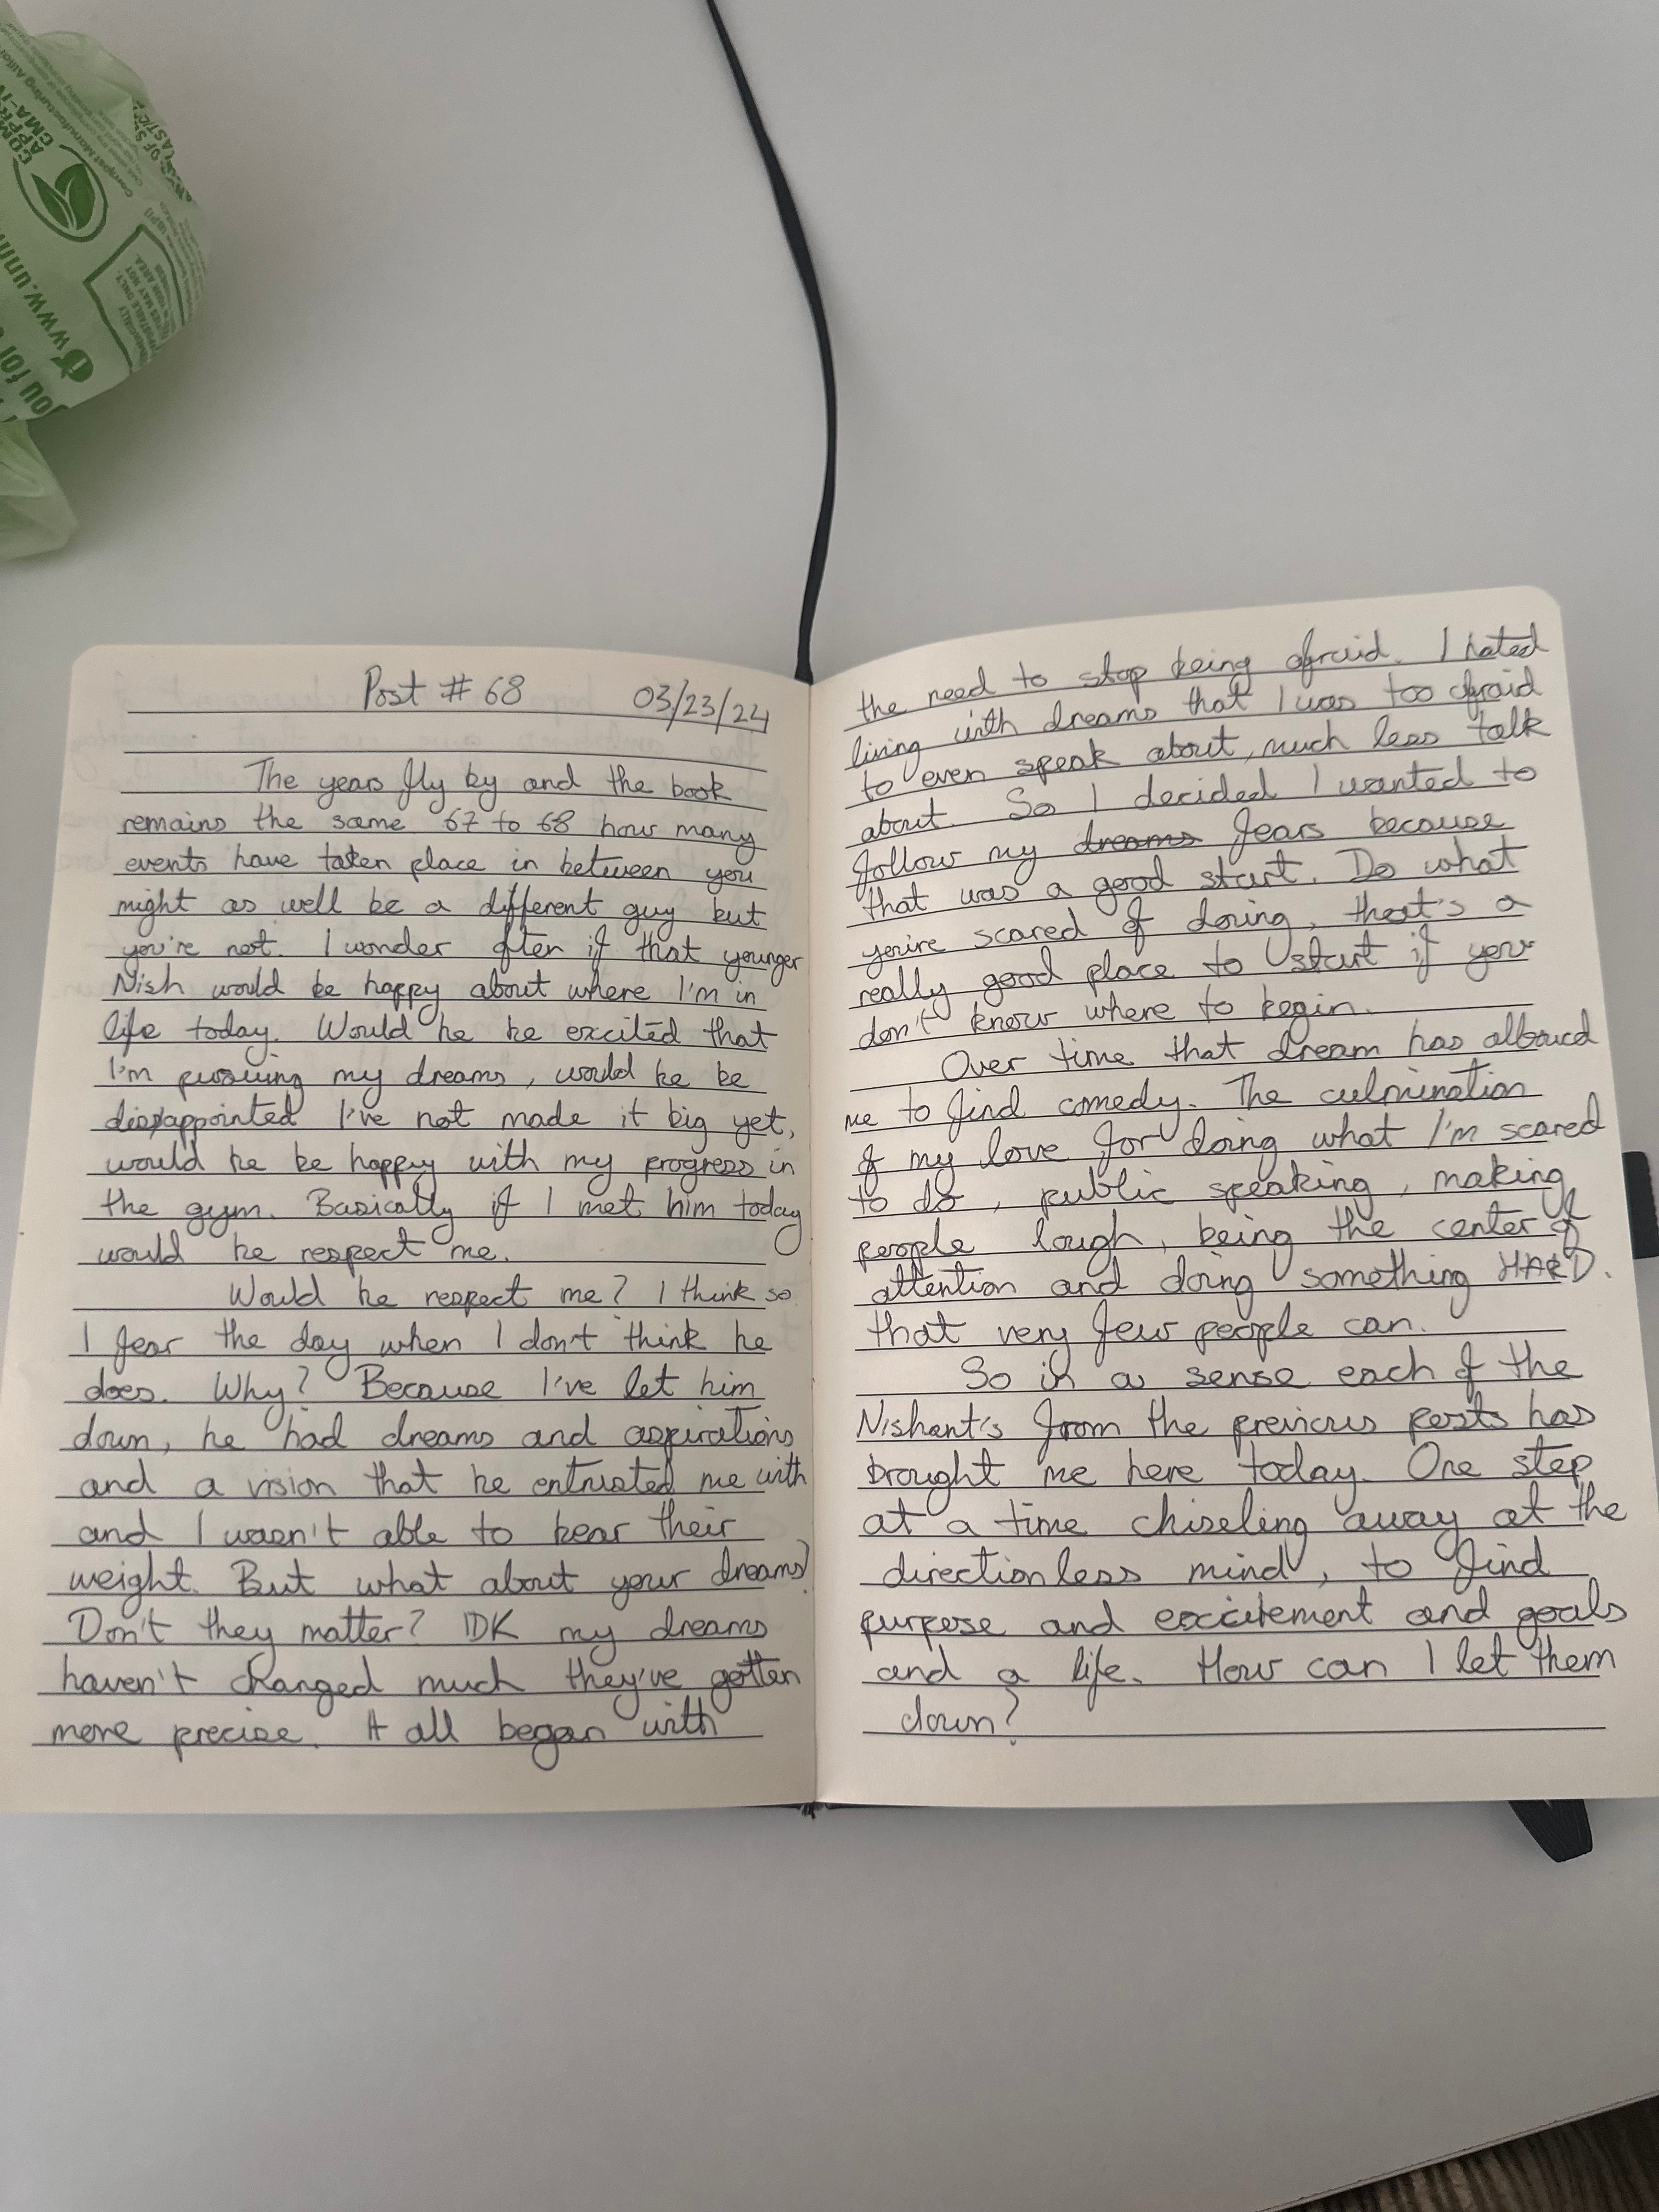 COMP
APPR
CMA-W
OF S
LASTIC
www.unni
you for
Post # 68 03/23/24
The years fly by and the book
remains the same 67 to 68 how many
events have taken place in between you
might as well be a different guy but
you're not. I wonder often if that younger
Nish would be happy about where I'm in
life today. Would he be excited that
I'm pursuing my dreams, would he be
disappointed I've not made it big yet,
would he be happy with my progress in
the gym. Basically if I met him today
would he respect me.
Would he respect me? I think so
I fear the day when I don't think he
does. Why? Because I've let him
down, he had dreams and aspirations
and a vision that he entrusted me with
and I wasn't able to bear their
weight. But what about your dreams?
Don't they matter? IDK my dreams
haven't changed much they've gotten
more precise. It all began with
the need to stop being afraid. I hated
living with dreams that I was too afraid
to even speak about, much less talk
about. So I decided I wanted to
follow my dreams fears because
that was a good start. Do what
you're scared of doing, that's a
really good place to start if you
don't know where to begin.
Over time that dream has allowed
me to find comedy. The culmination
of my love for doing what I'm scared
to do, public speaking, making
people laugh, being the center of
attention and doing something HARD.
that very few people can.
So in a sense each of the
Nishant's from the previous posts has
brought me here today. One step
at a time chiseling away at the
directionless mind, to find
purpose and excitement and goals
and a life. How can I let them
down?